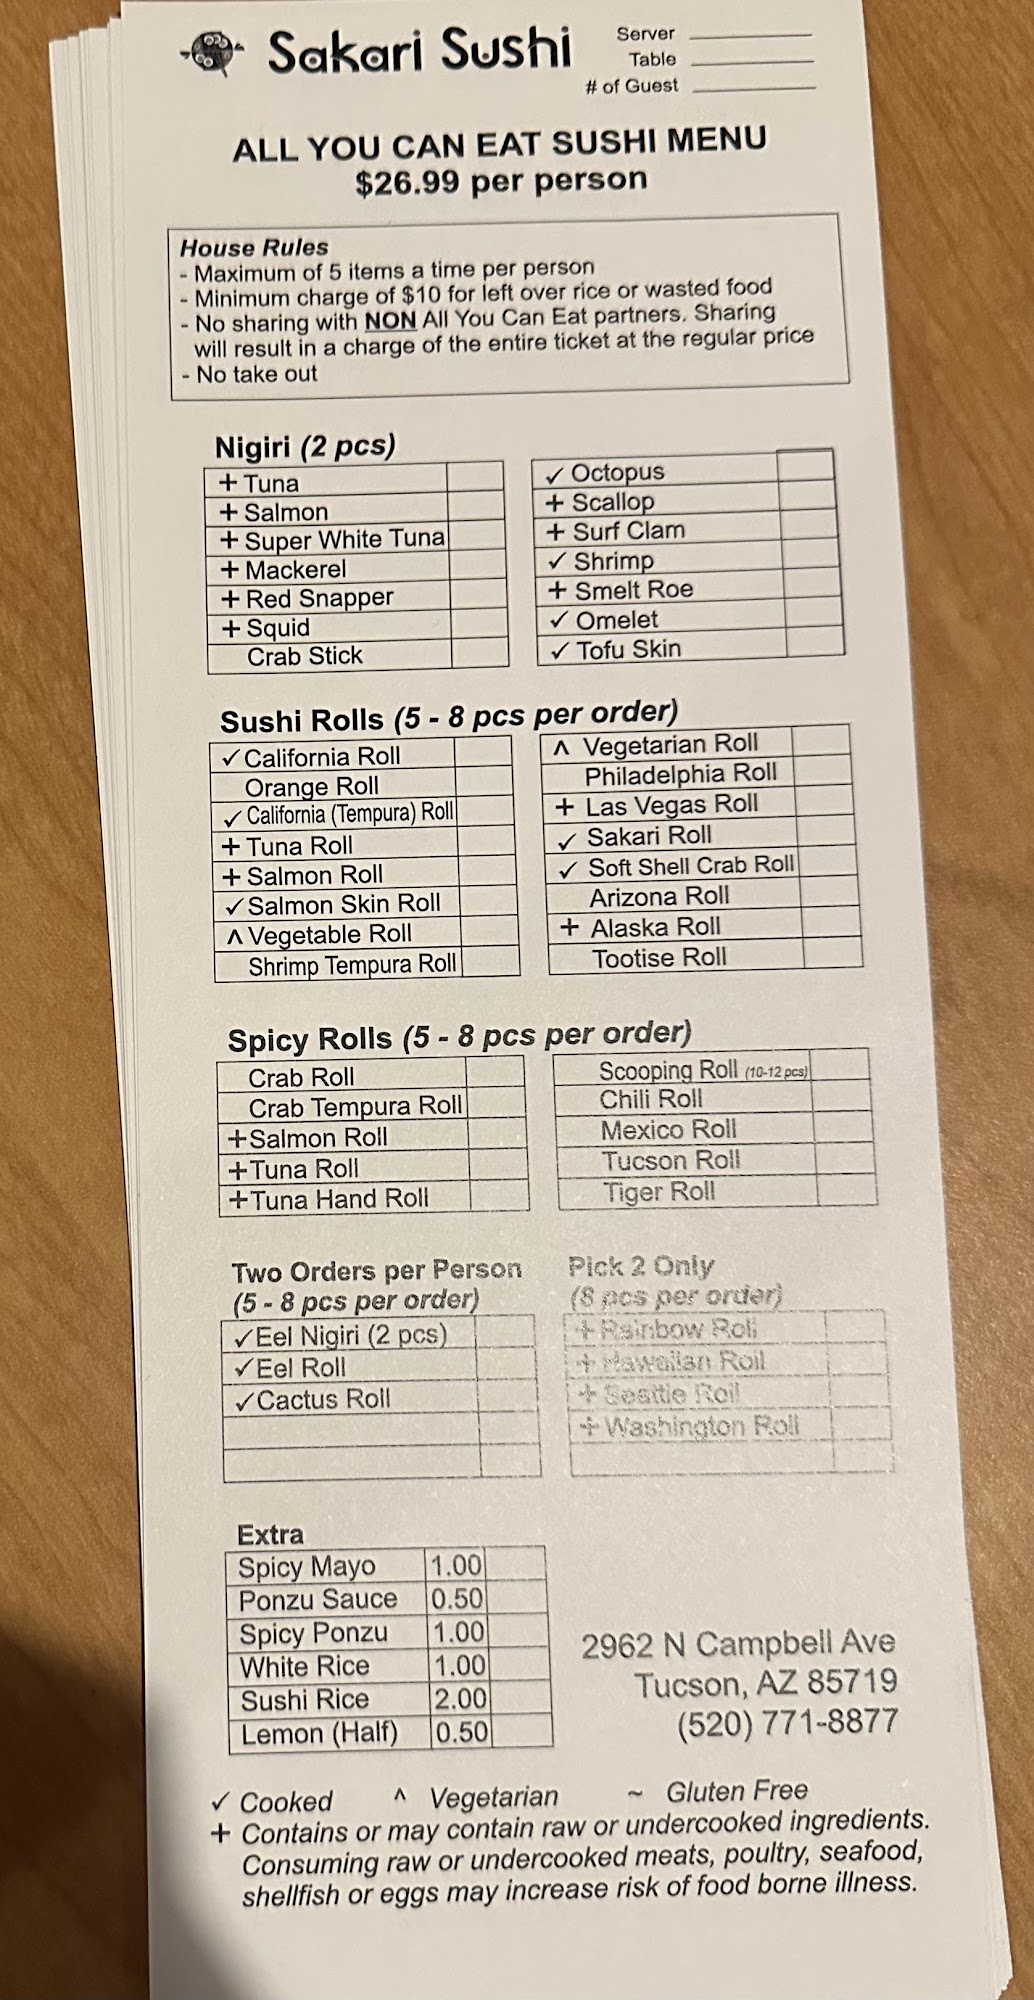 Sakari Sushi
Server
Table
# of Guest
ALL YOU CAN EAT SUSHI MENU
$26.99 per person
House Rules
- Maximum of 5 items a time per person
- Minimum charge of $10 for left over rice or wasted food
- No sharing with NON All You Can Eat partners. Sharing
will result in a charge of the entire ticket at the regular price
- No take out
Nigiri (2 pcs)
+ Tuna
+ Salmon
+ Super White Tuna
+ Mackerel
+ Red Snapper
+ Squid
Crab Stick
✓ Octopus
+ Scallop
+ Surf Clam
✓ Shrimp
+ Smelt Roe
✓ Omelet
✓ Tofu Skin
Sushi Rolls (5 - 8 pcs per order)
✓ California Roll
Orange Roll
✓ California (Tempura) Roll
+ Tuna Roll
+ Salmon Roll
✓ Salmon Skin Roll
^ Vegetable Roll
Shrimp Tempura Roll
^ Vegetarian Roll
Philadelphia Roll
+ Las Vegas Roll
✓ Sakari Roll
✓ Soft Shell Crab Roll
Arizona Roll
+ Alaska Roll
Tootise Roll
Spicy Rolls (5 - 8 pcs per order)
Crab Roll
Crab Tempura Roll
+ Salmon Roll
+ Tuna Roll
+ Tuna Hand Roll
Scooping Roll (10-12 pcs)
Chili Roll
Mexico Roll
Tucson Roll
Tiger Roll
Two Orders per Person
(5 - 8 pcs per order)
✓ Eel Nigiri (2 pcs)
✓ Eel Roll
✓ Cactus Roll
Pick 2 Only
(8 pcs per order)
+ Rainbow Roll
+ Hawaiian Roll
+ Seattle Roll
+ Washington Roll
Extra
Spicy Mayo 1.00
Ponzu Sauce 0.50
Spicy Ponzu 1.00
White Rice 1.00
Sushi Rice 2.00
Lemon (Half) 0.50
2962 N Campbell Ave
Tucson, AZ 85719
(520) 771-8877
✓ Cooked ^ Vegetarian ~ Gluten Free
+ Contains or may contain raw or undercooked ingredients.
Consuming raw or undercooked meats, poultry, seafood,
shellfish or eggs may increase risk of food borne illness.